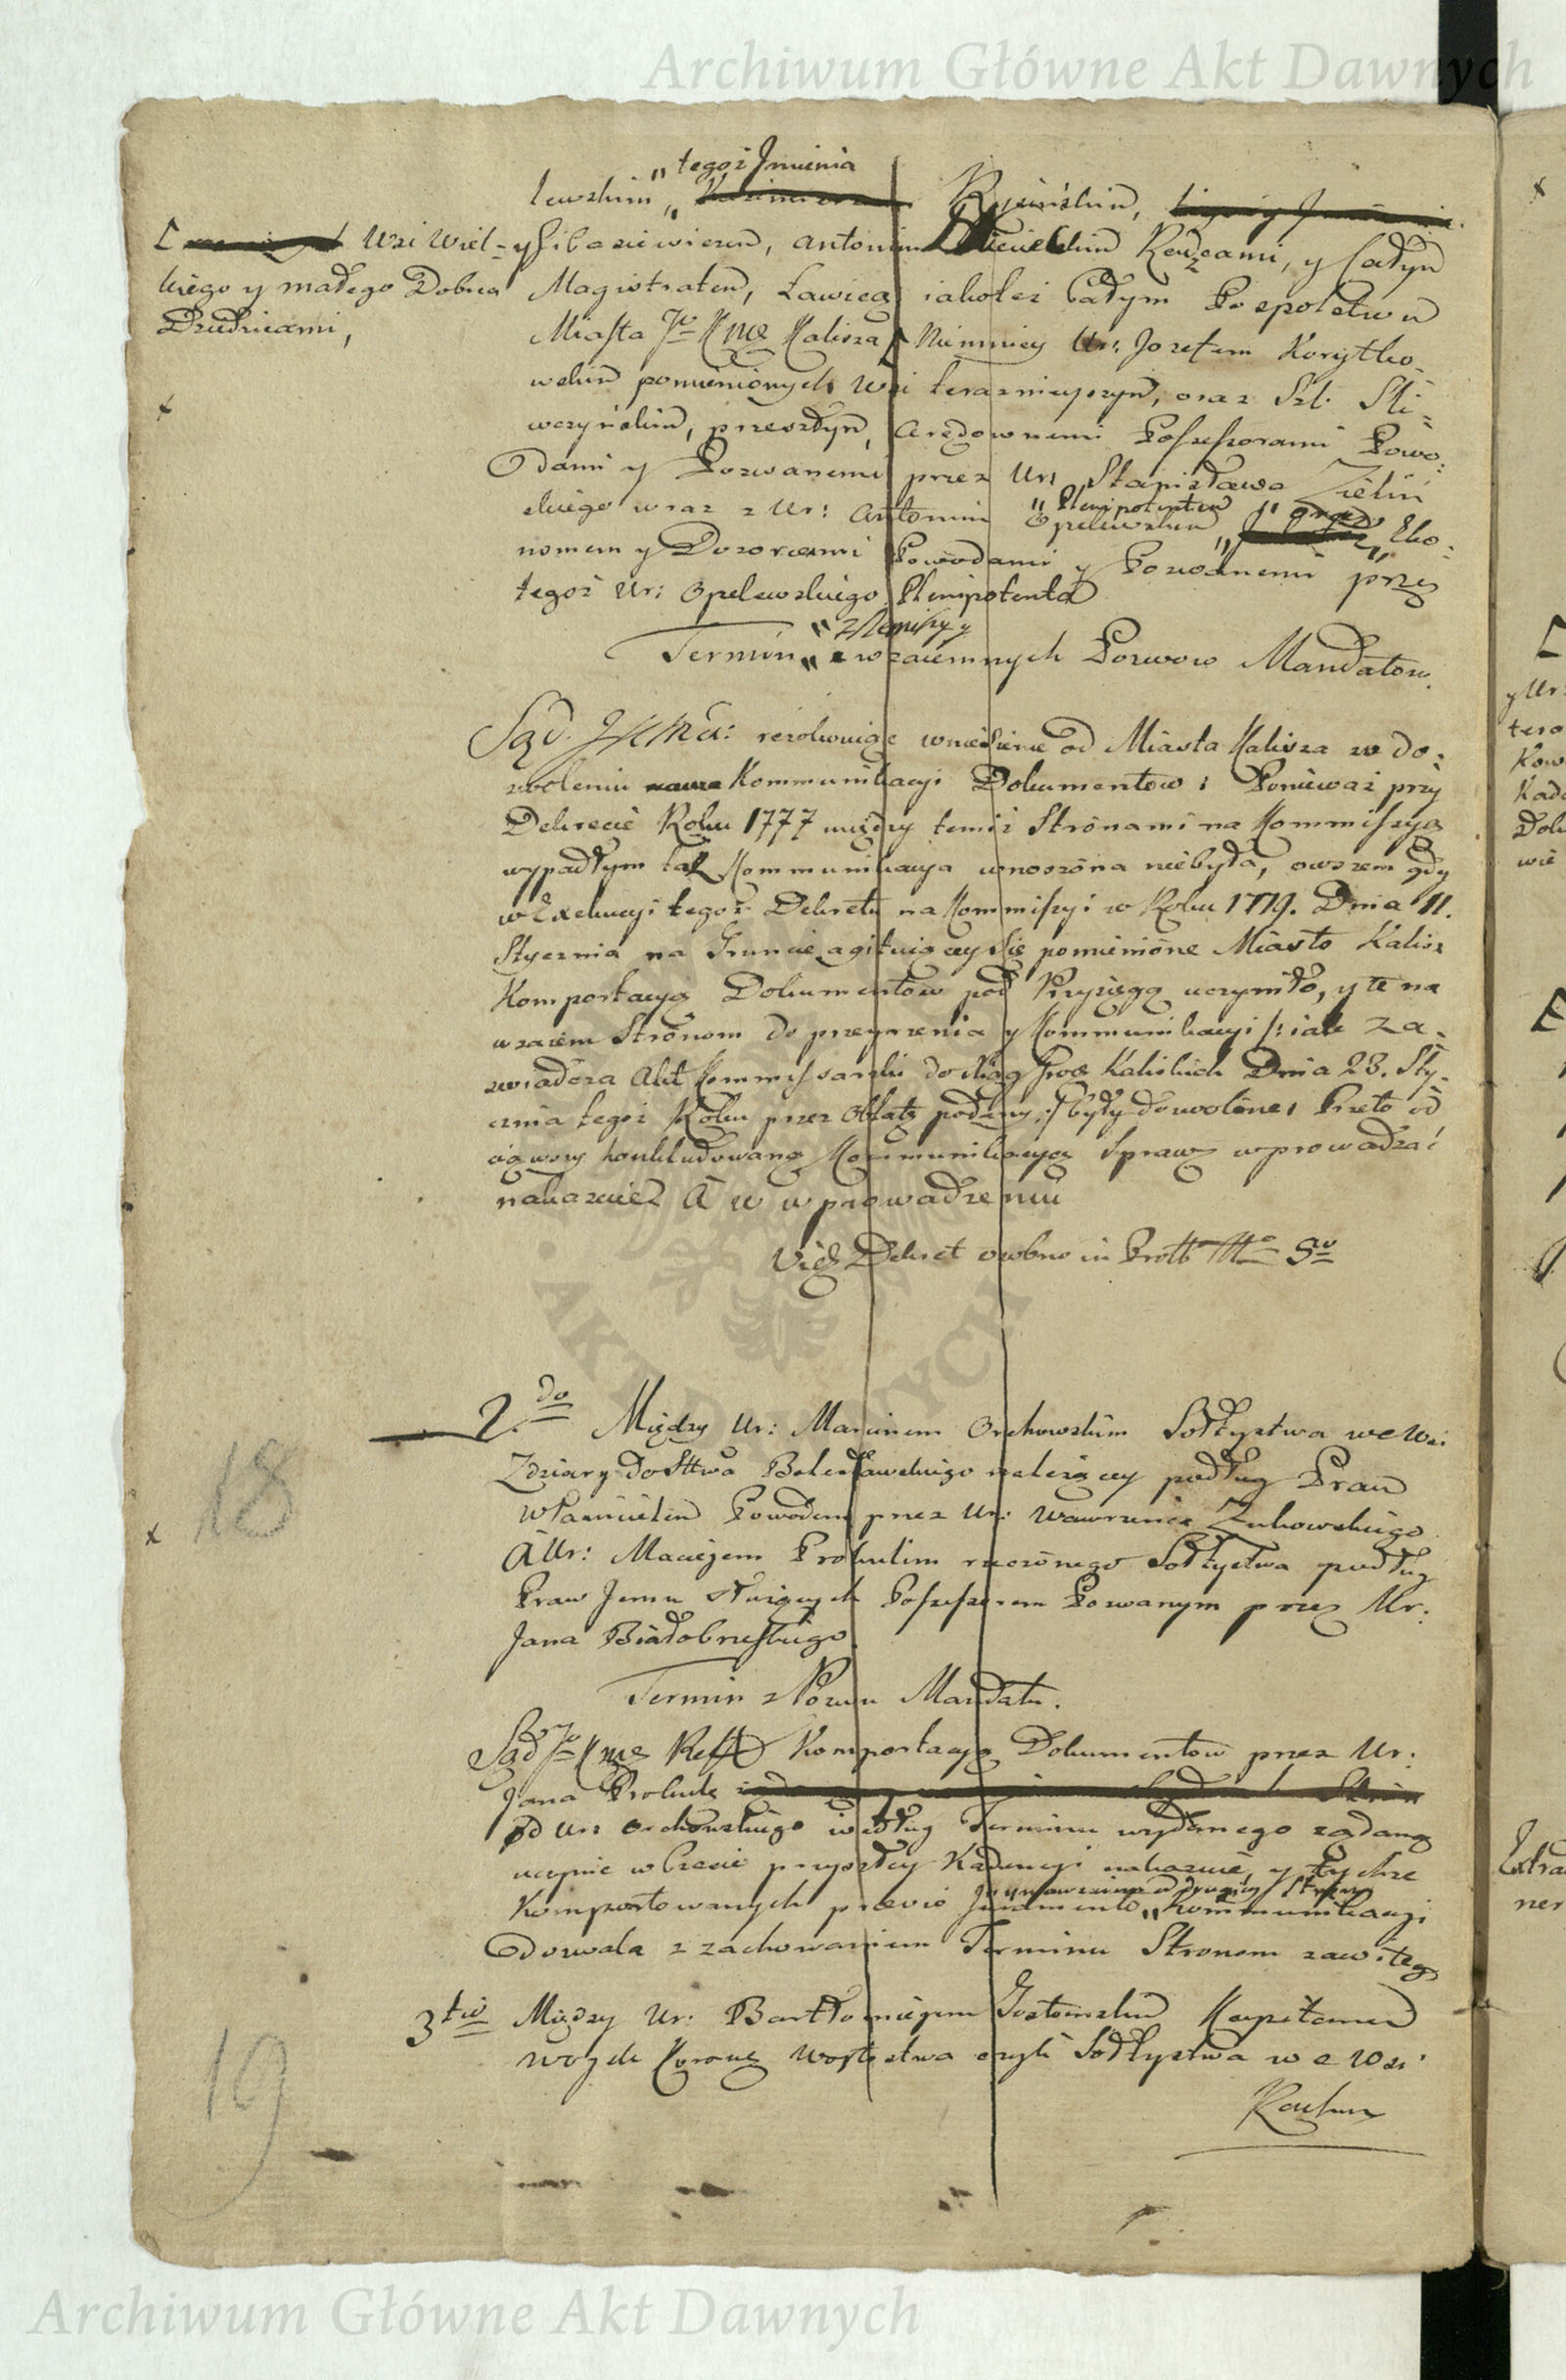 Archiwum Główne Akt Dawnych
"tegoż Jmienia
lewskim "
[ Wsi Wiel=
kiego y małego Dobrca
Dziedzicami,
Antonim Radzcami, y Całym
Magistratem, Ławicą iakoteż Całym Pospolstwem
Miasta JKMci Kalisza [ Niemniey Ur: Jozefem Korytko=
wskim pomienionych Wsi teraznieyszym, oraz Szl: Sli=
wczyńskim, przeszłym, Arędownemi Possessorami Powo=
dami y Pozwanemi przez Ur: Stanisława Zieliń
skiego wraz z Ur: Antonim Opelewskim "Plenipotentem" Eko=
nomem y Dozorcami Powodami y Pozwanemi przez
tegoż Ur: Opelewskiego Plenipotenta
Termin " z Remissy y " wzaiemnych Pozwow Mandatow.
Sąd JKMci: rezolwuiąc wniesienie od Miasta Kalisza w do=
zwoleniu Kommunikacyi Dokumentow: Ponieważ przy
Dekrecie Roku 1777 między temiż Stronami na Kommissyą
wypadłym tak Kommunikacya wnoszona niebyła, owszem gdy
w Exekucyi tegoż Dekretu na Kommissyi w Roku 1779. Dnia 11.
Stycznia na Gruncie agituiącey się pomienione Miasto Kalisz
Komportacyą Dokumentow pod Przysięgą uczyniło, y te na
wzaiem Stronom do przeyrzenia y Kommunikacyi /: iak za=
swiadcza Akt Kommissarski do Xiąg Grod: Kaliskich Dnia 23. Sty=
cznia tegoż Roku przez Oblatę podany :/ były dozwolone, Przeto od
rzuciwszy konkludowaną Kommunikacyą Sprawę wprowadzać
nakazuie A w wprowadzeniu
Vide Dekret osobno in Protb
2do Między Ur: Marcinem Orchowskim Sołtystwa we Wsi
Zdziary do Sttwa Bolesławskiego należącey podług Praw
Włascicielem Powodem przez Ur: Wawrzenca Zukowskiego
A Ur: Maciejem Prokulim rzeczonego Sołtystwa podług
Praw Jemu służących Possessorem Pozwanym przez Ur:
Jana Białobrzeskiego.
Termin z Pozwu Mandatu.
Sąd JKMci Reffo Komportacyą Dokumentow przez Ur:
Jana Prokulę
od Ur: Orchowskiego według Terminu wydanego żądaną
uczynić w Czasie przyszłey Kadencyi nakazuie, y tychże
Komportowanych prævio Juramento " Kommunikacyi
dozwala z zachowaniem Terminu Stronom zawitego
3tio Między Ur: Bartłomiejem Gostomskim Kapitanem
Woysk Koronn: Woytostwa czyli Sołtystwa we Wsi
18
19
Archiwum Główne Akt Dawnych